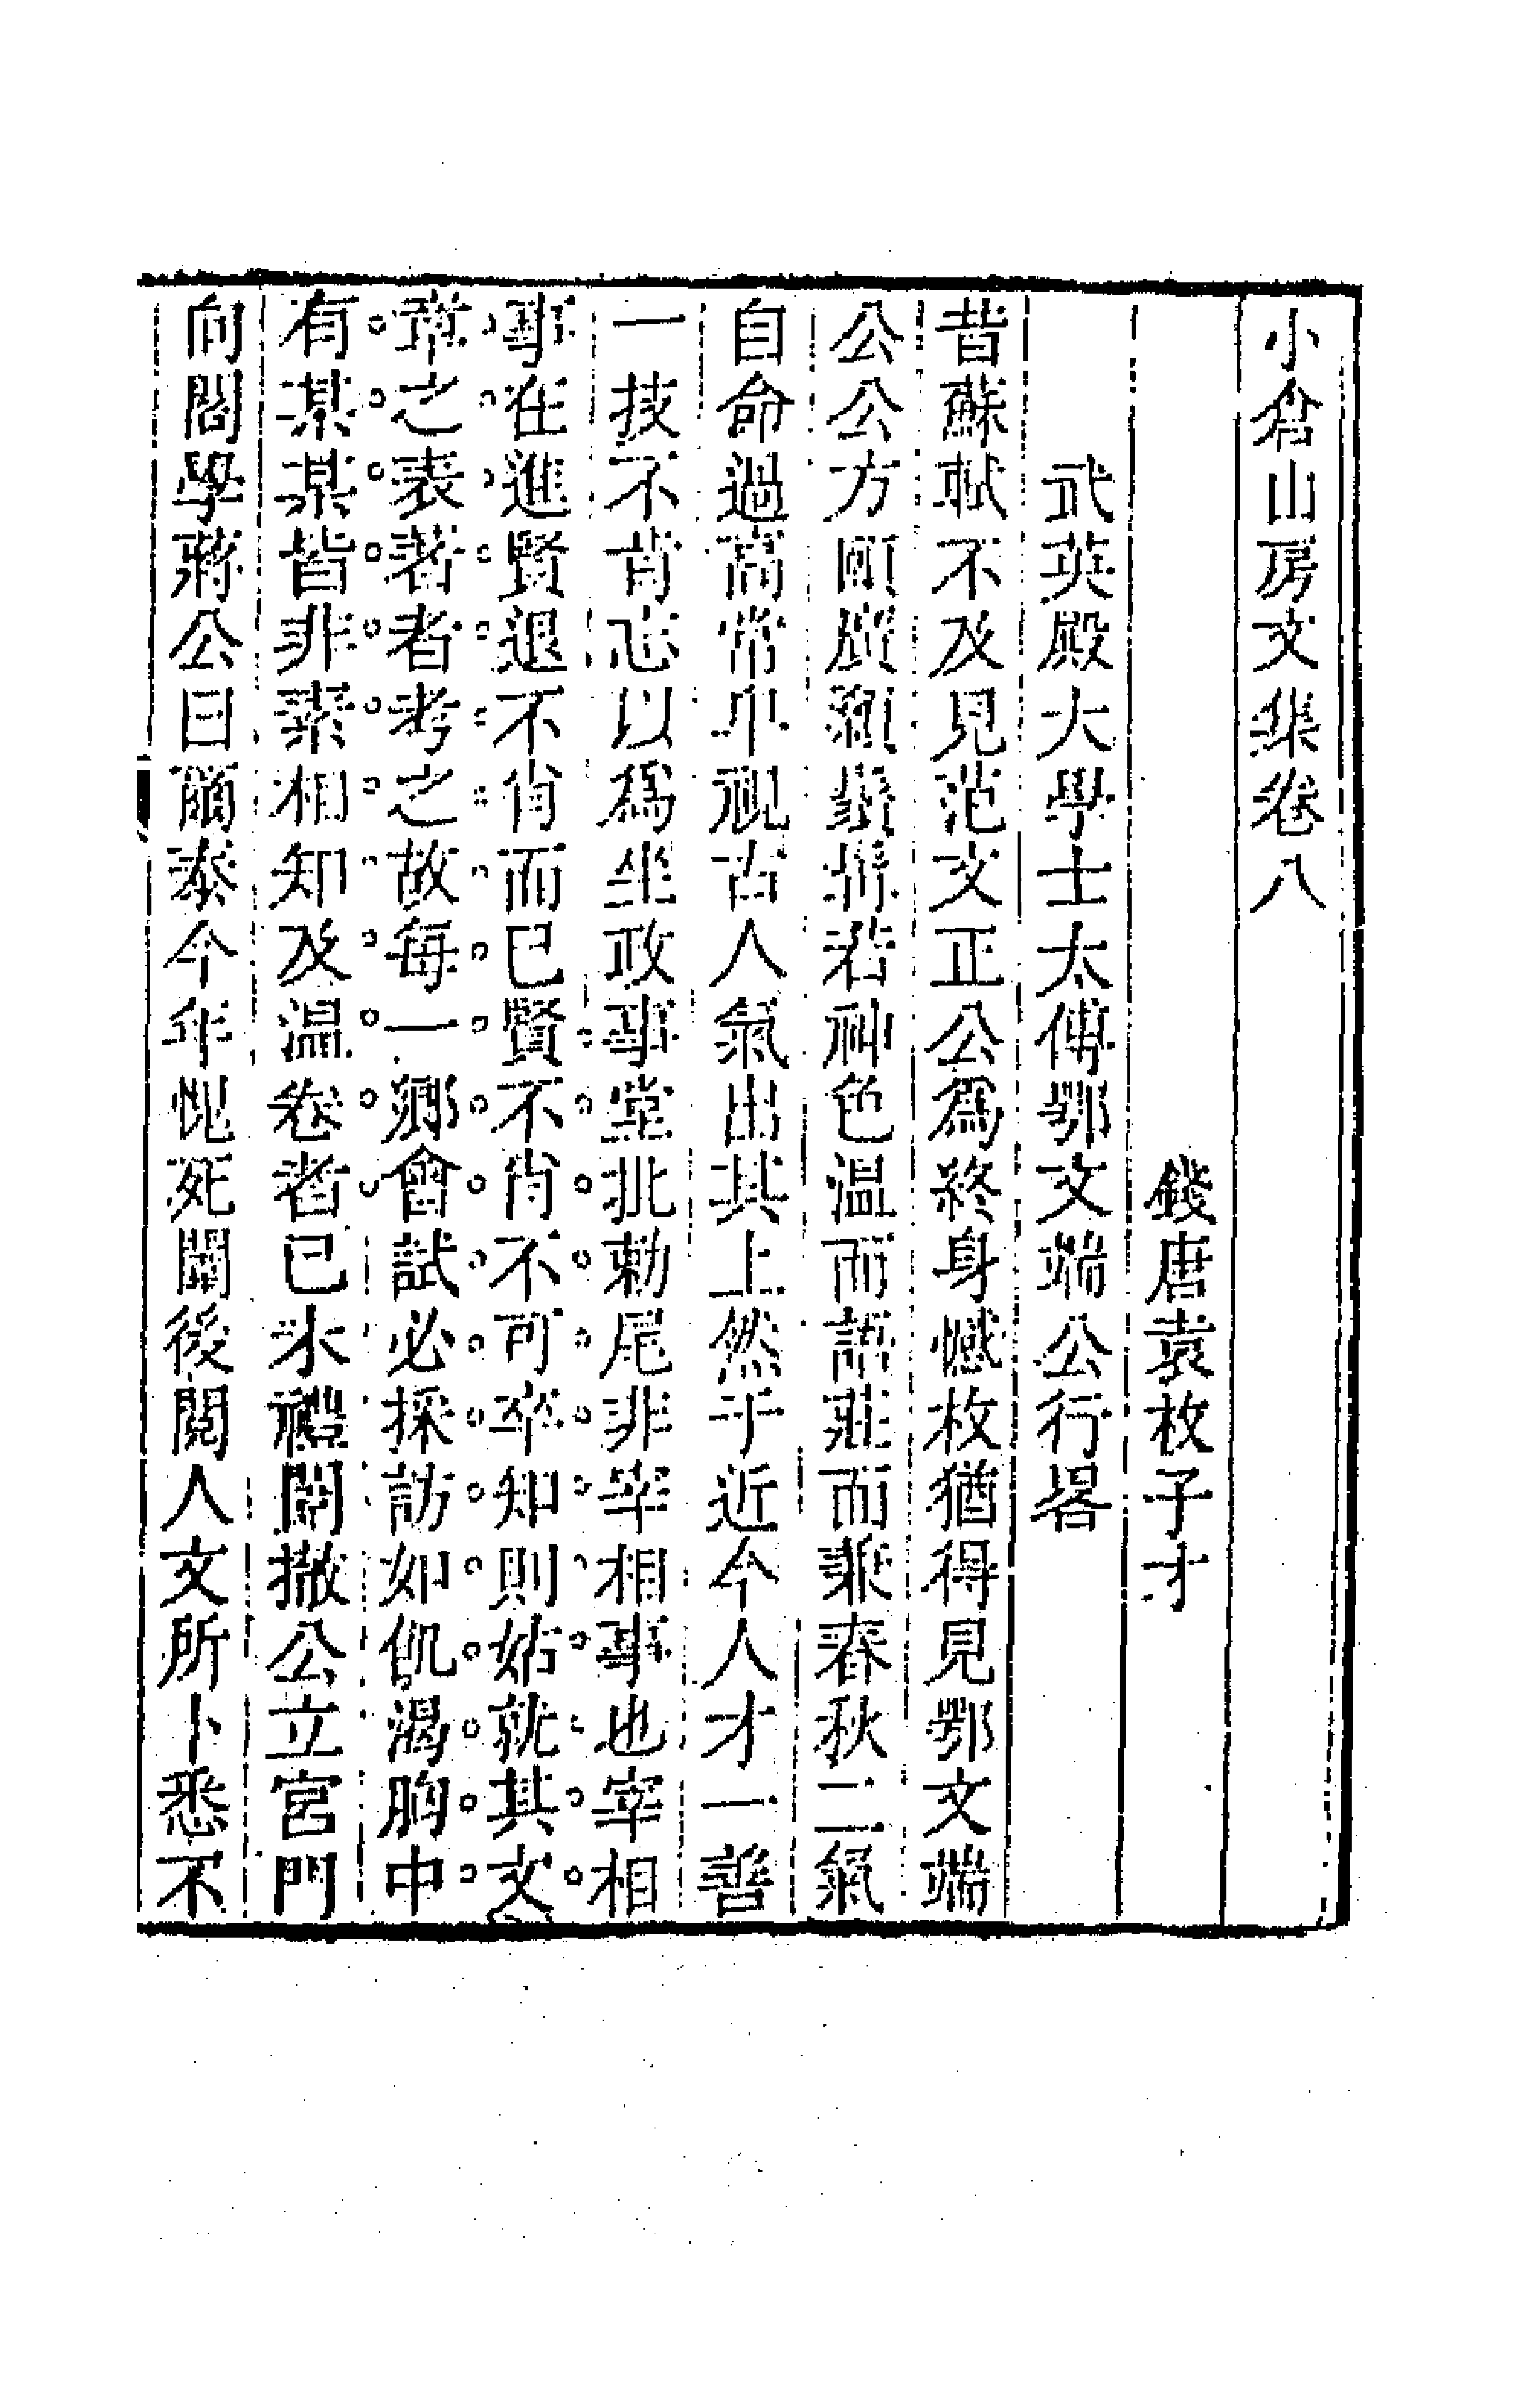 小倉山房文集卷八
錢唐袁枚子才
武英殿大學士太傅鄂文端公行畧
昔蘇軾不及見范文正公爲終身憾枚猶得見鄂文端
公公方頤廣顙鬚髥若神色温而語莊而兼春秋二氣
自命過高常卑視古人氣出其上然于近今人才一善
一技不肯忘以爲坐政事堂批勅尾非宰相事也宰相
事在進賢退不肖而已賢不肖不可卒知則姑就其文
章之表著者考之故每一鄉會試必採訪如飢渴胸中
有某某皆非素相知及温卷者已未禮闈撤公立宮門
向閣學蔣公曰爾泰今年愧死闈後閱人文所卜悉不